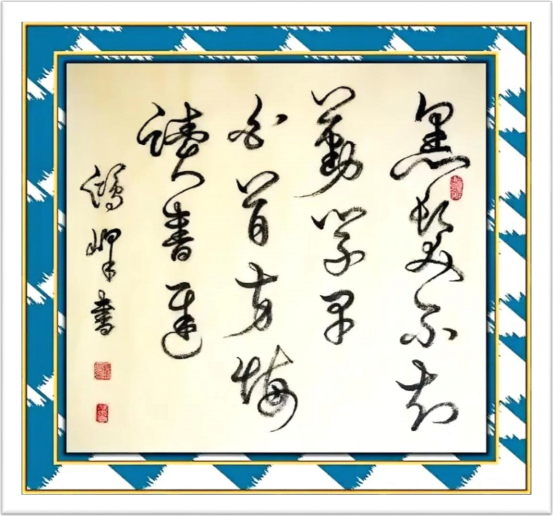 黑髮不知
勤學早
白首方悔
讀書遲
鴻峰書